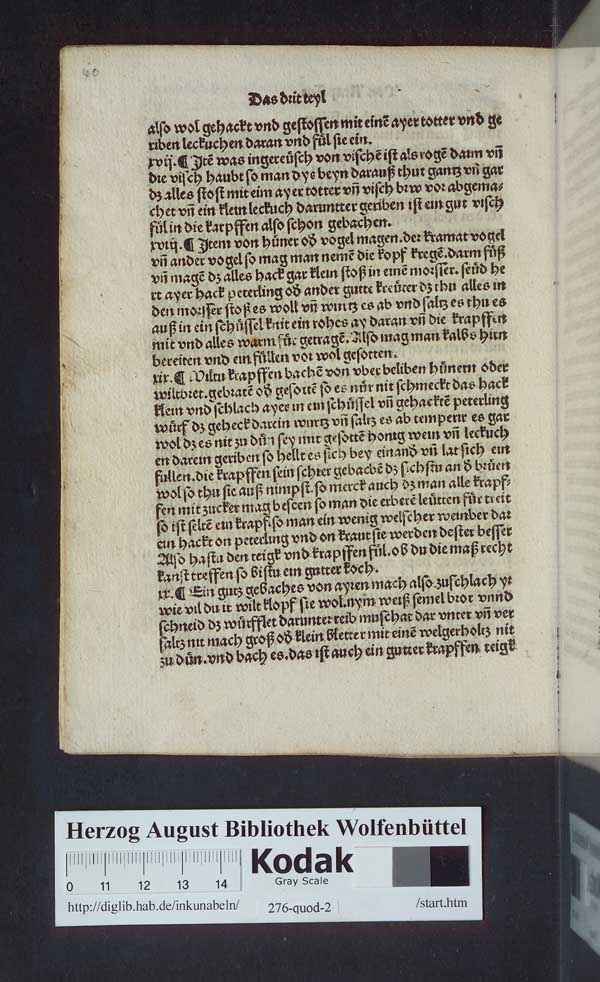 40
Das drit teyl
also wol gehackt vnd gestossen mit einē ayer totter vnd ge
riben leckuchen daran vnd fül sie ein.
xvij. ¶ Itē was ingereüsch von vischē ist als rogē darm vñ
die visch haubt so man dye beyn darauß thut gantz vñ gar
dz alles stost mit eim ayer totter vñ visch brw vor abgema⸗
chet vñ ein klein leckuch daruntter geriben ist ein gut visch
fül in die karpffen also schon gebachen.
xviij. ¶ Item von hüner oď vogel magen. der kramat vogel
vñ ander vogel so mag man nemē die kopf kregē. darm füß
vñ magē dz alles hack gar klein stoß in einē morsser. seüd he
rt ayer hack peterling oď ander gutte kreüter dz thu alles in
den morsser stoß es woll vñ wurtz es ab vnd saltz es thu es
auß in ein schüssel knit ein rohes ay daran vñ die krapffen
mit vnd alles warm für getragē. Also mag man kalbs hirn
bereiten vnd ein füllen vor wol gesotten.
xix. ¶ Wiltu krapffen bachē von vber beliben hünern oder
wiltbret. gebratē oď gesottē so es nür nit schmeckt das hack
klein vnd schlach ayer in ein schüssel vñ gehacktē peterling
würf dz geheck darein wurtz vñ saltz es ab temperir es gar
wol dz es nit zu dün sey mit gesottē honig wein vñ leckuch
en darein geriben so hellt es sich bey einanď vñ lat sich ein
füllen. die krapffen sein schier gebachē dz sichstu an ď brüen
wol so thu sie auß nimpst. so merck auch dz man alle krapf⸗
fen mit zucker mag beseen so man die erberē leütten für treit
so ist seltē ein krapf. so man ein wenig welscher weinber dar
ein hackt on peterling vnd on kraut sie werden dester besser
Also hastu den teigk vnd krapffen fül. ob du die maß recht
kanst treffen so bistu ein gutter koch.
xx. ¶ Ein gutz gebaches von ayren mach also. zuschlach yr
wie vil du ir wilt klopf sie wol. nym weiß semel brot vnnd
schneid dz würfflet darunter reib muschat dar vnter vñ ver
saltz nit mach groß oď klein bletter mit einē welgerholtz nit
zu dün. vnd bach es. das ist auch ein gutter krapffen teigk
Herzog August Bibliothek Wolfenbüttel
0 11 12 13 14
Kodak
Gray Scale
http://diglib.hab.de/inkunabeln/ 276-quod-2 /start.htm